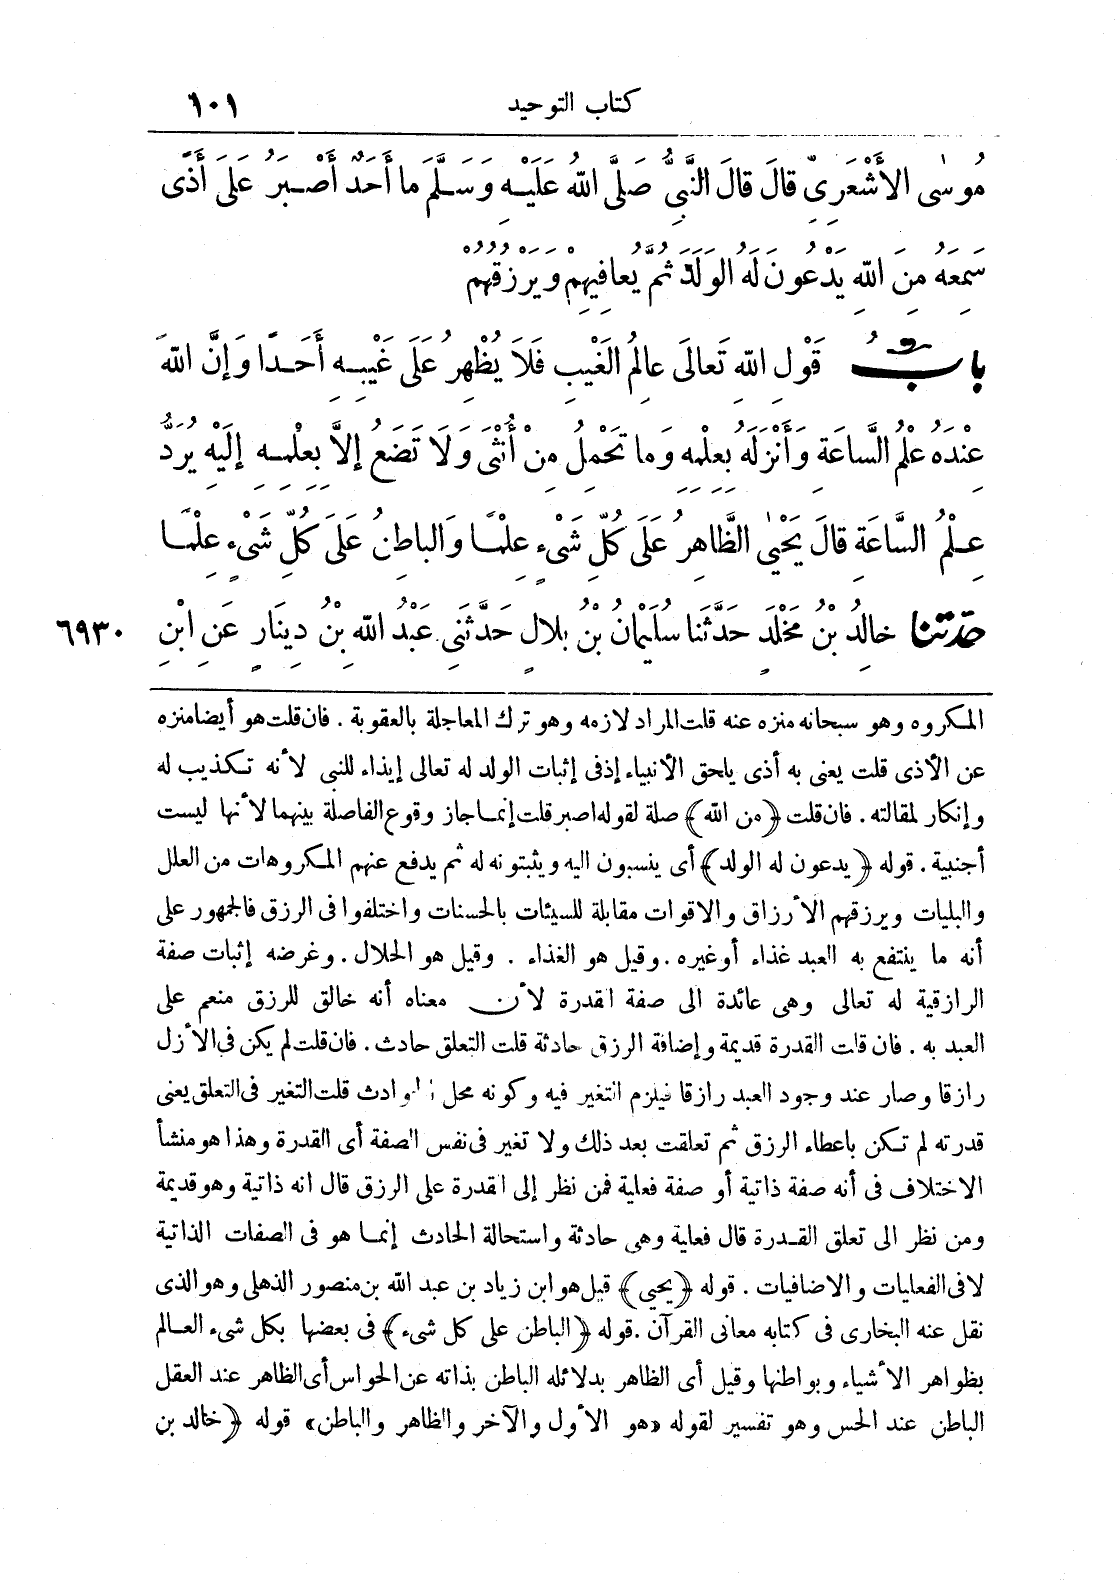 كتاب التوحيد ١٠١
مُوسَى الأَشْعَرِيِّ قالَ قالَ النَّبِيُّ صَلَّى اللهُ عَلَيْهِ وَسَلَّمَ ما أَحَدٌ أَصْبَرُ عَلَى أَذًى
سَمِعَهُ مِنَ اللهِ يَدْعُونَ لَهُ الوَلَدَ ثُمَّ يُعافِيهِمْ وَيَرْزُقُهُمْ
بابُ قَوْلِ اللهِ تَعالَى عالِمُ الغَيْبِ فَلَا يُظْهِرُ عَلَى غَيْبِهِ أَحَدًا وَإِنَّ اللهَ
عِنْدَهُ عِلْمُ السَّاعَةِ وَأَنْزَلَهُ بِعِلْمِهِ وَما تَحْمِلُ مِنْ أُنْثَى وَلَا تَضَعُ إِلاَّ بِعِلْمِهِ إِلَيْهِ يُرَدُّ
عِلْمُ السَّاعَةِ قالَ يَحْيَى الظَّاهِرُ عَلَى كُلِّ شَيْءٍ عِلْمًا وَالباطِنُ عَلَى كُلِّ شَيْءٍ عِلْمًا
٦٩٣٠ حَدَّثَنا خالِدُ بْنُ مَخْلَدٍ حَدَّثَنا سُلَيْمَانُ بْنُ بِلالٍ حَدَّثَنِي عَبْدُ اللهِ بْنُ دِينَارٍ عَنِ ابْنِ
المكروه وهو سبحانه منزه عنه قلت المراد لازمه وهو ترك المعاجلة بالعقوبة . فان قلت هو أيضا منزه
عن الأذى قلت يعنى به أذى يلحق الأنبياء إذ فى إثبات الولد له تعالى إيذاء للنبى لأنه تكذيب له
وإنكار لمقالته . فان قلت ﴿من الله﴾ صلة لقوله اصبر قلت إنما جاز وقوع الفاصلة بينهما لأنها ليست
أجنبية . قوله ﴿يدعون له الولد﴾ أى ينسبون اليه ويثبتونه له ثم يدفع عنهم المكروهات من العلل
والبليات ويرزقهم الأرزاق والاقوات مقابلة للسيئات بالحسنات واختلفوا فى الرزق فالجمهور على
أنه ما ينتفع به العبد غذاء أو غيره . وقيل هو الغذاء . وقيل هو الحلال . وغرضه إثبات صفة
الرازقية له تعالى وهى عائدة الى صفة القدرة لأن معناه أنه خالق للرزق منعم على
العبد به . فان قلت القدرة قديمة وإضافة الرزق حادثة قلت التعلق حادث . فان قلت لم يكن فى الأزل
رازقا وصار عند وجود العبد رازقا فيلزم التغير فيه وكونه محل الحوادث قلت التغير فى التعلق يعنى
قدرته لم تكن باعطاء الرزق ثم تعلقت بعد ذلك ولا تغير فى نفس الصفة أى القدرة وهذا هو منشأ
الاختلاف فى أنه صفة ذاتية أو صفة فعلية فمن نظر إلى القدرة على الرزق قال انه ذاتية وهو قديمة
ومن نظر الى تعلق القدرة قال فعلية وهى حادثة واستحالة الحادث إنما هو فى الصفات الذاتية
لا فى الفعليات والاضافيات . قوله ﴿يحيى﴾ قيل هو ابن زياد بن عبد الله بن منصور الذهلى وهو الذى
نقل عنه البخارى فى كتابه معانى القرآن . قوله ﴿الباطن على كل شىء﴾ فى بعضها بكل شىء العالم
بظواهر الأشياء وبواطنها وقيل أى الظاهر بدلائله الباطن بذاته عن الحواس أى الظاهر عند العقل
الباطن عند الحس وهو تفسير لقوله «هو الأول والآخر والظاهر والباطن» قوله ﴿خالد بن